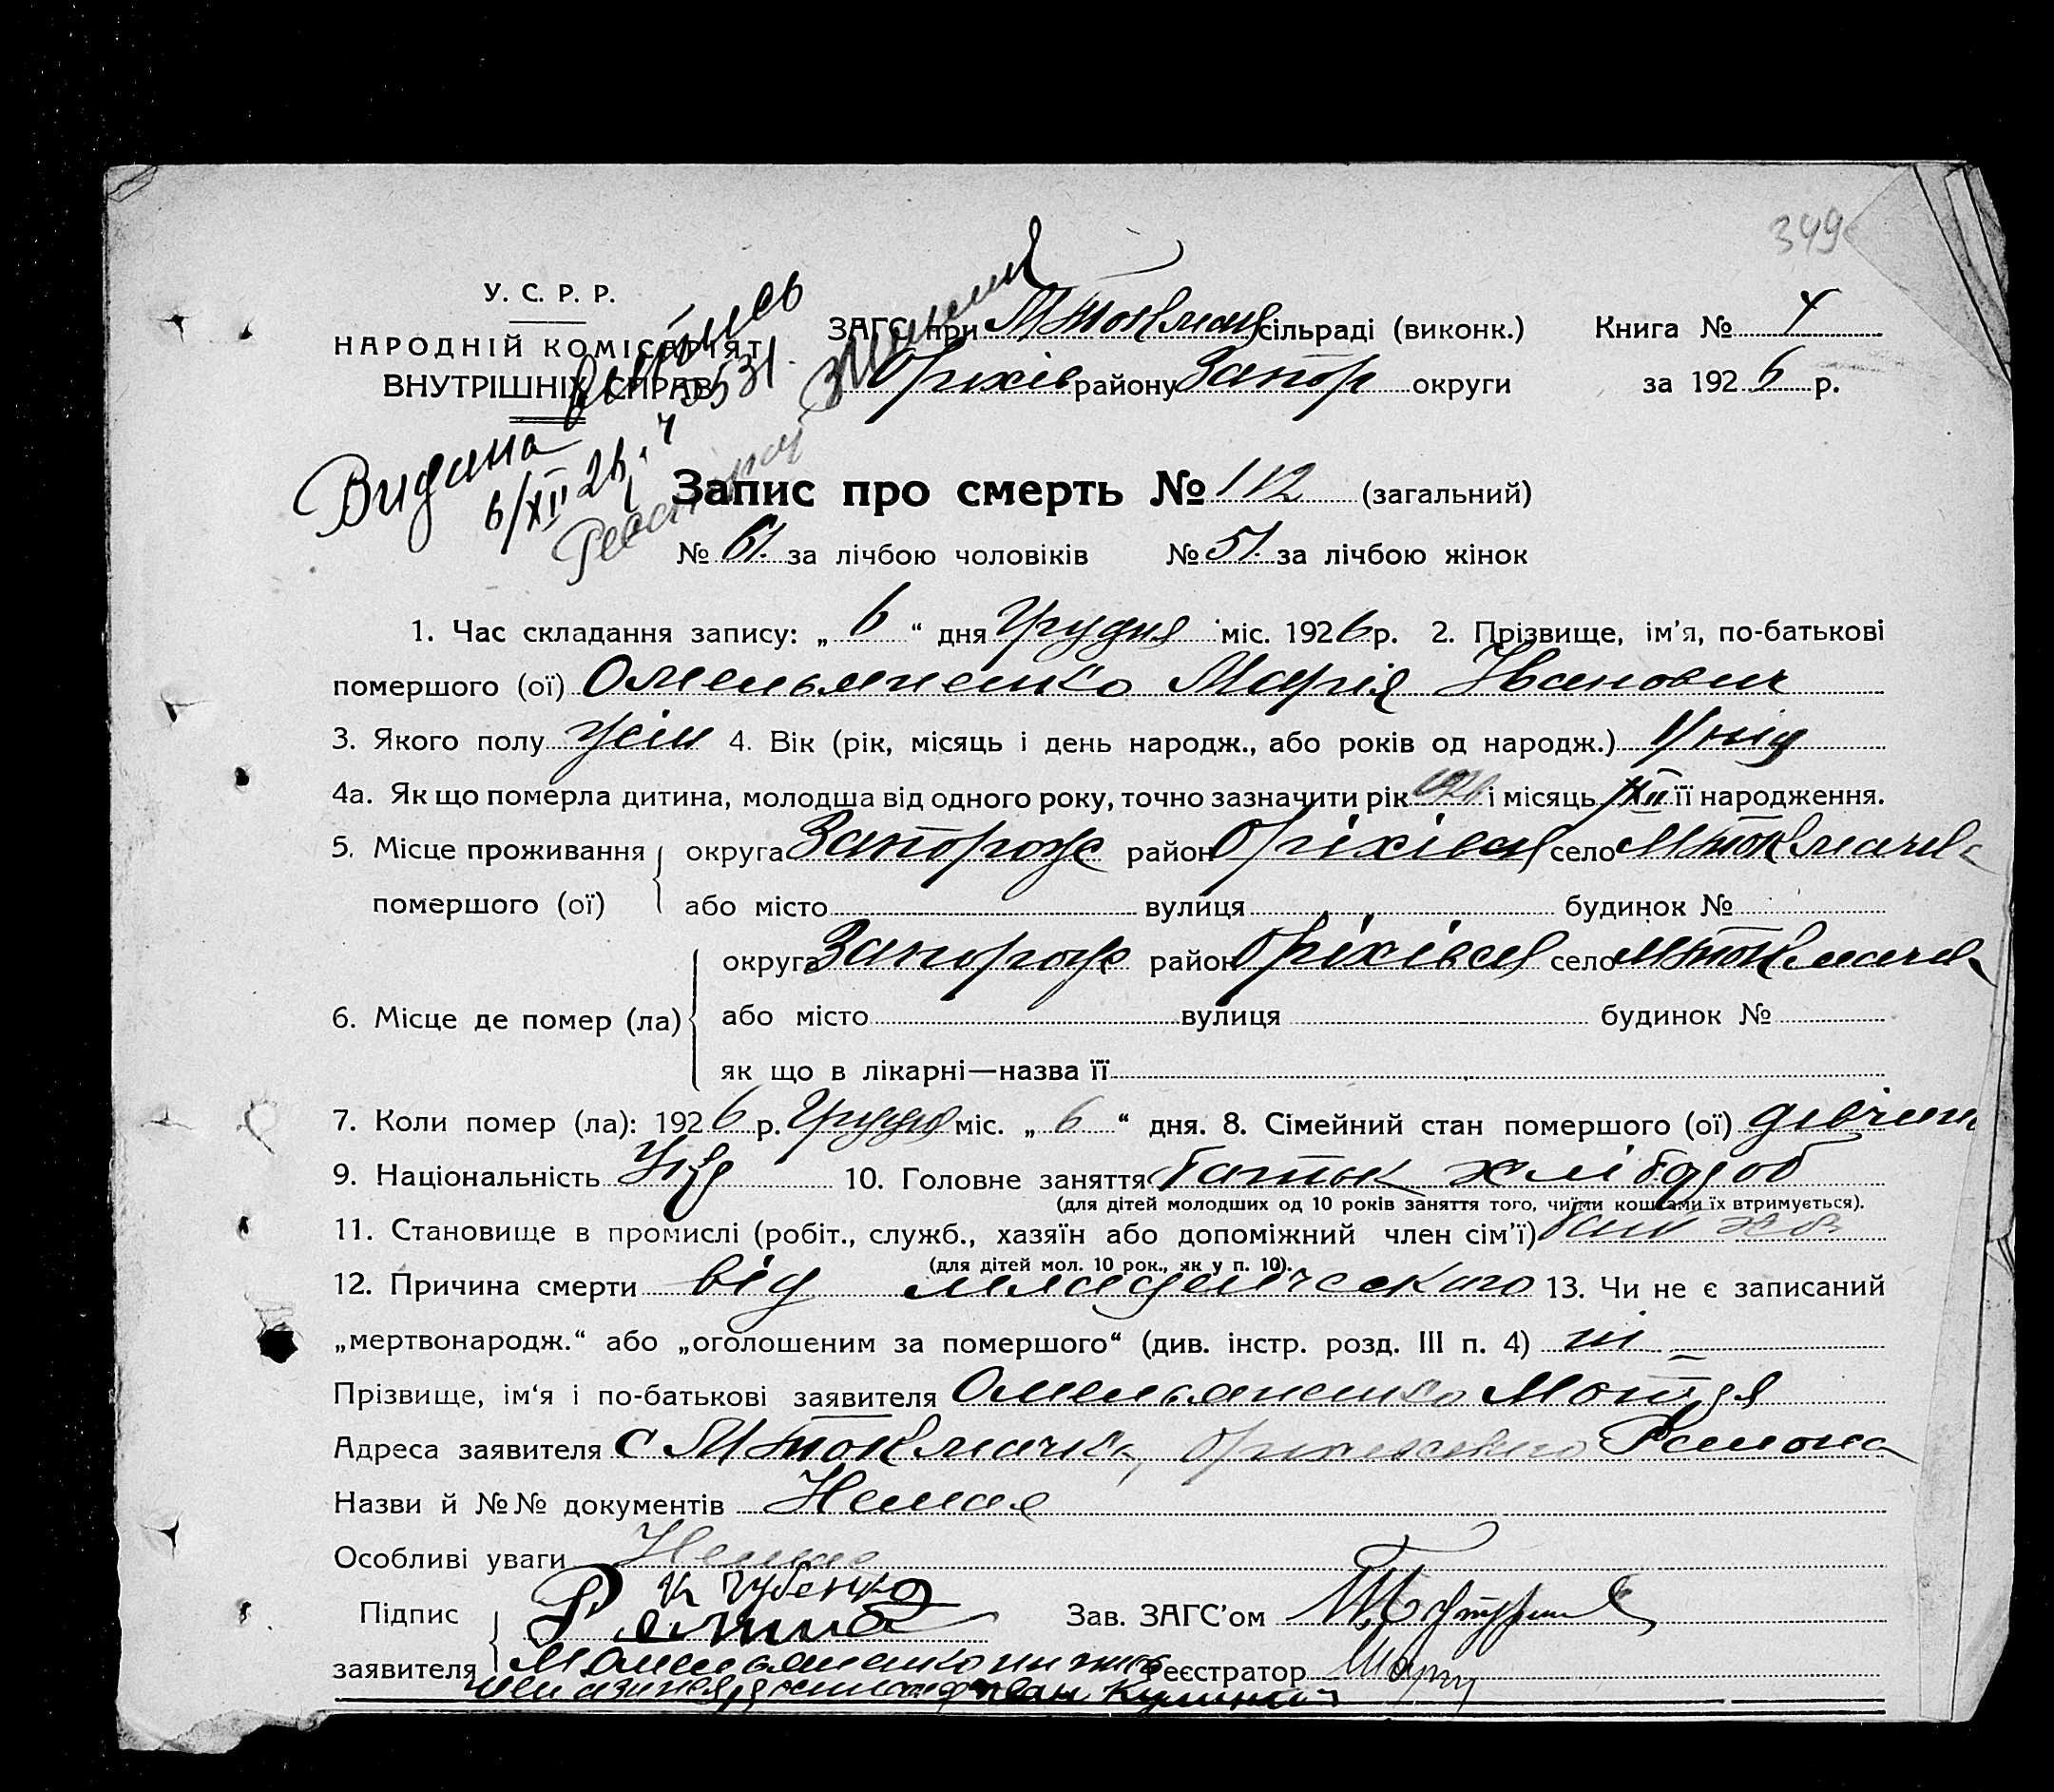 349
У. С. Р. Р.
НАРОДНІЙ КОМІСАРІЯТ
ВНУТРІШНІХ СПРАВ
ЗАГС при М Токмач сільраді (виконк.) Книга № 4
Оріхів району Запор округи за 1926 р.
Видана випись
6/XII 26 ч 5531
Запис про смерть № 112 (загальний)
№ 61. за лічбою чоловіків № 51. за лічбою жінок
1. Час складання запису: „ 6 “ дня Грудня міс. 1926 р. 2. Прізвище, ім’я, по-батькові
помершого (ої) Омельяненко Марія Іванович
3. Якого полу жін 4. Вік (рік, місяць і день народж., або років од народж.)
4а. Як що померла дитина, молодша від одного року, точно зазначити рік 1926 і місяць XII її народження.
5. Місце проживання округа Запорож район Оріхівся село М Токмачка
помершого (ої) або місто вулиця будинок №
округа Запорож район Оріхівся село М Токмачка
6. Місце де помер (ла) або місто вулиця будинок №
як що в лікарні—назва її
7. Коли помер (ла): 1926 р. Грудня міс. „ 6 “ дня. 8. Сімейний стан помершого (ої) дівчина
9. Національність Укр 10. Головне заняття батьк хлібороб
(для дітей молодших од 10 років заняття того, чиїми коштами їх втримується).
11. Становище в промислі (робіт., служб., хазяїн або допоміжний член сім’ї)
(для дітей мол. 10 рок., як у п. 10).
12. Причина смерти від младенческого 13. Чи не є записаний
„мертвонародж.“ або „оголошеним за помершого“ (див. інстр. розд. III п. 4) ні
Прізвище, ім‘я і по-батькові заявителя Омельяненко Мотря
Адреса заявителя с М Токмачка, Оріхівського Района
Назви й №№ документів Немає
Особливі уваги Немає
Підпис Зав. ЗАГС’ом
заявителя Реєстратор